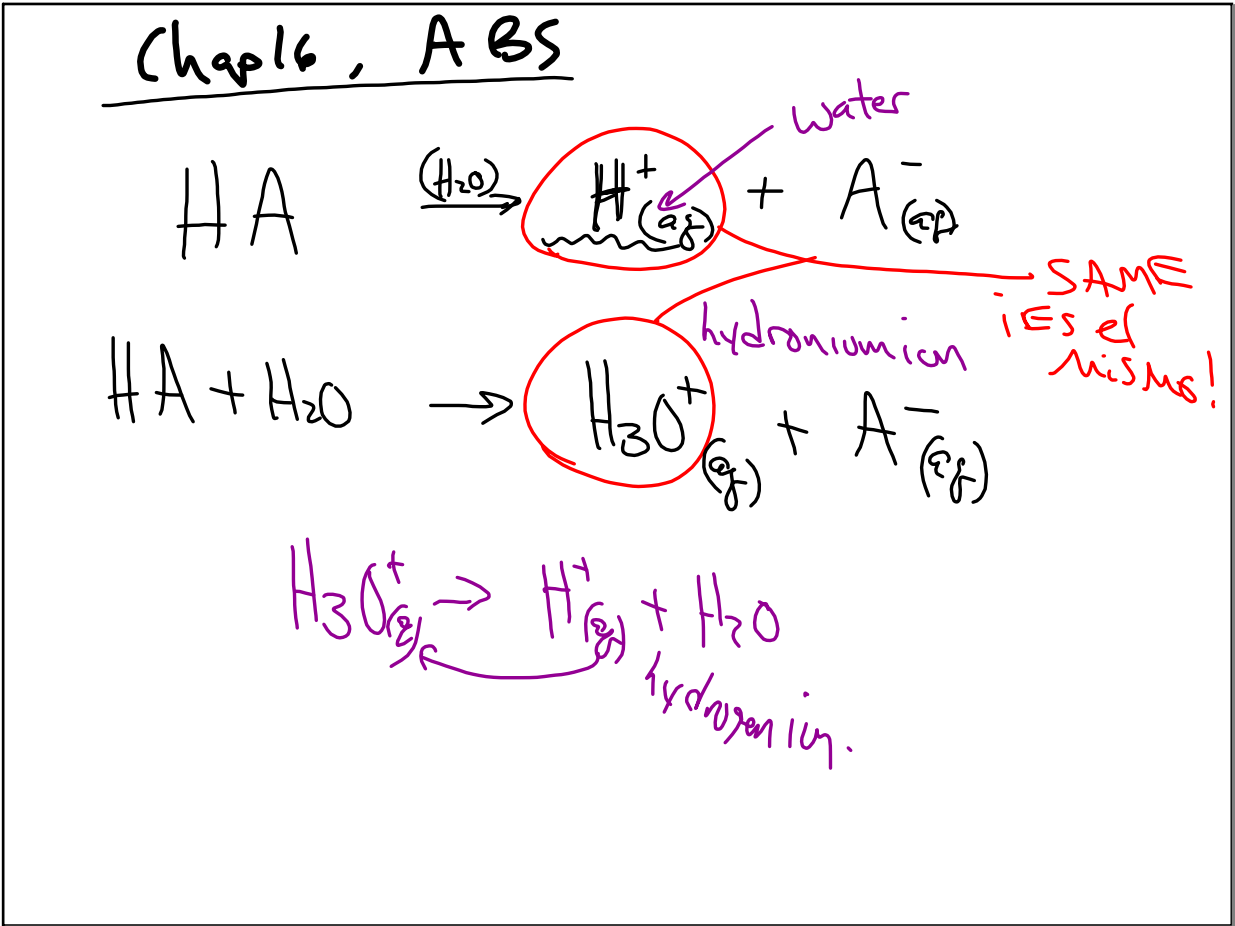 Chap16, ABS
water
HA (H₂O)→ H⁺(aq) + A⁻(aq)
SAME
¡Es el
mismo!
hydronium ion
HA + H₂O → H₃O⁺(aq) + A⁻(aq)
H₃O⁺(aq) → H⁺(aq) + H₂O
hydrogen ion.